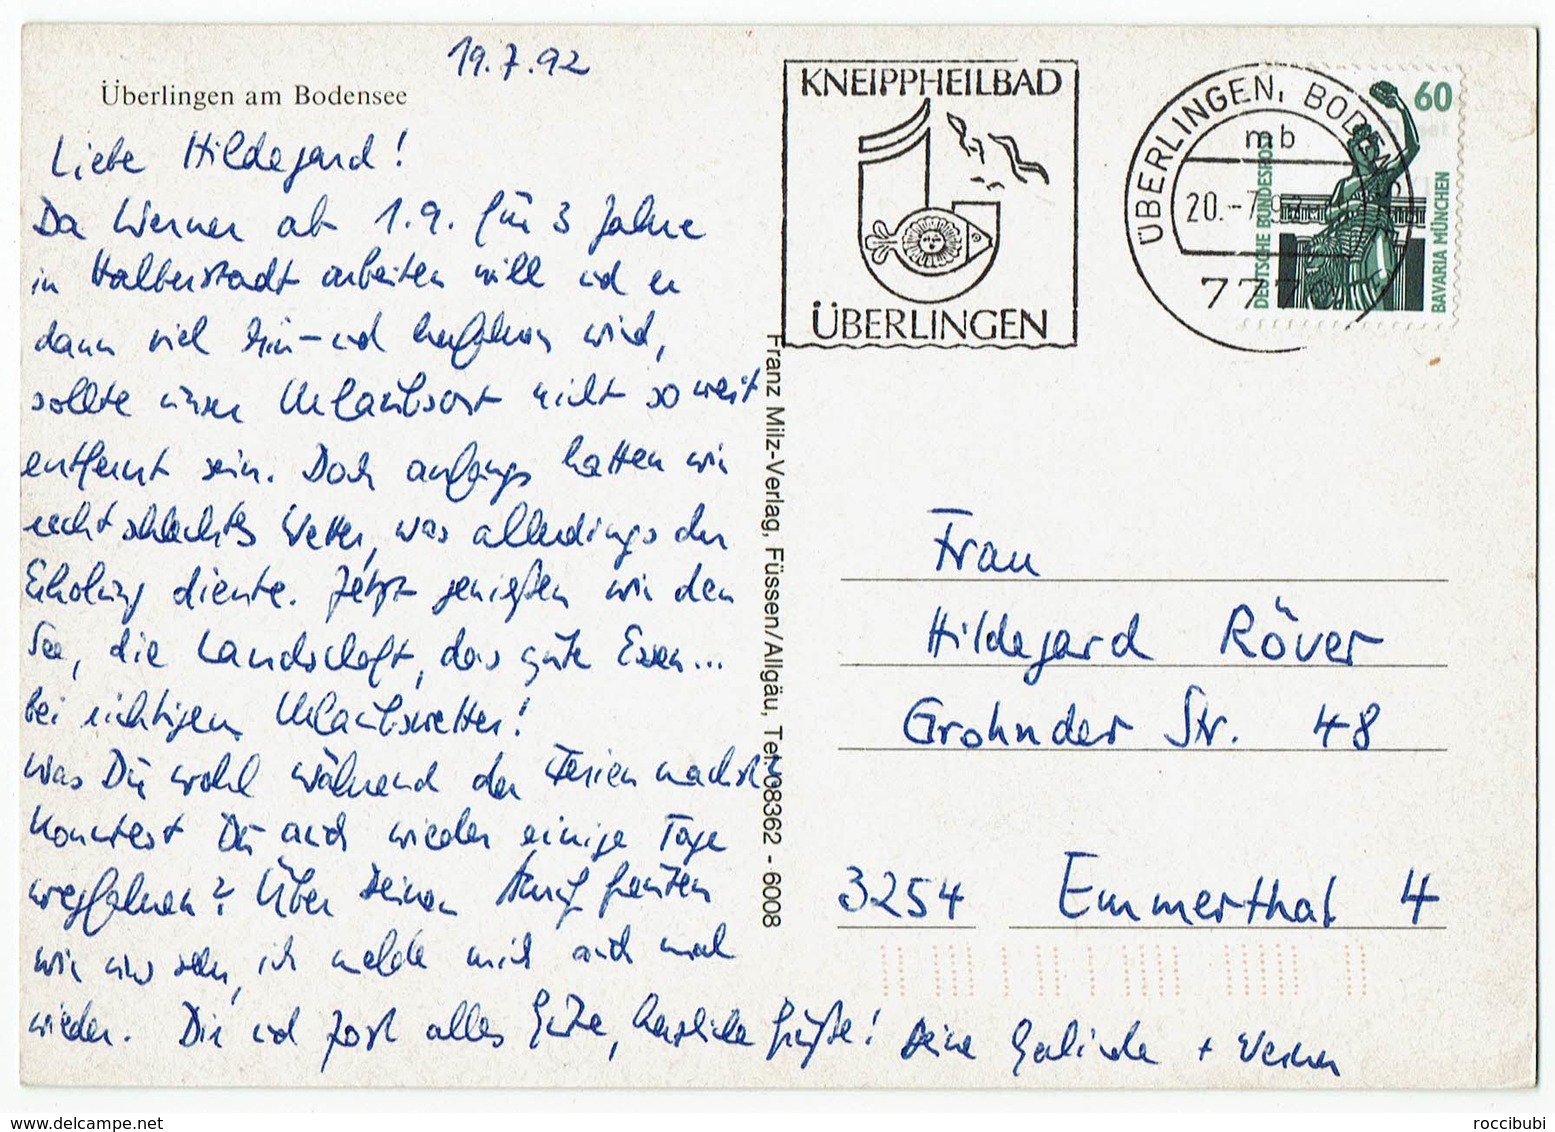 19.7.92
Überlingen am Bodensee
Liebe Hildegard!
Da Werner ab 1.9. für 3 Jahre
in Halberstadt arbeiten will ud er
dann viel hin- ud herfahren wird,
sollte unser Urlaubsort nicht so weit
entfernt sein. Doch anfangs hatten wir
recht schlechtes Wetter, was allerdings der
Erholung diente. Jetzt genießen wir den
See, die Landschaft, das gute Essen...
bei richtigem Urlaubswetter!
Was Du wohl während der Ferien machst
Konntest Du auch wieder einige Tage
wegfahren? Über Deinen Anruf freuten
wir uns sehr, ich melde mich auch mal
wieder. Dir ud alles Gute, herzliche Grüße! Deine + Werner
Franz Milz-Verlag, Füssen/Allgäu, Tel. 08362 - 6008
KNEIPPHEILBAD
ÜBERLINGEN
ÜBERLINGEN, BODENSEE
mb
20.-7.92
777
60
DEUTSCHE BUNDESPOST
BAVARIA MÜNCHEN
Frau
Hildegard Röver
Grohnder Str. 48
3254 Emmerthal 4
delcampe.net
roccibubi